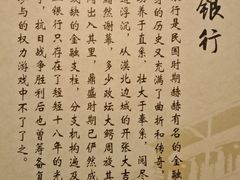 银行
行是民国时期赫赫有名的金融
身的历史又充满了曲折和传奇，
功养于直系，壮大于奉系，阅尽
道浮沉，从漠北边城的开张大吉
出入其里，多少政坛大鳄周旋其
缺的金融支柱，分支机构遍及
，鼎盛时期已俨然成
银行只存在了短短十八年的光
，抗日战争胜利后也曾筹备复
参与的权力游戏中不了了之。